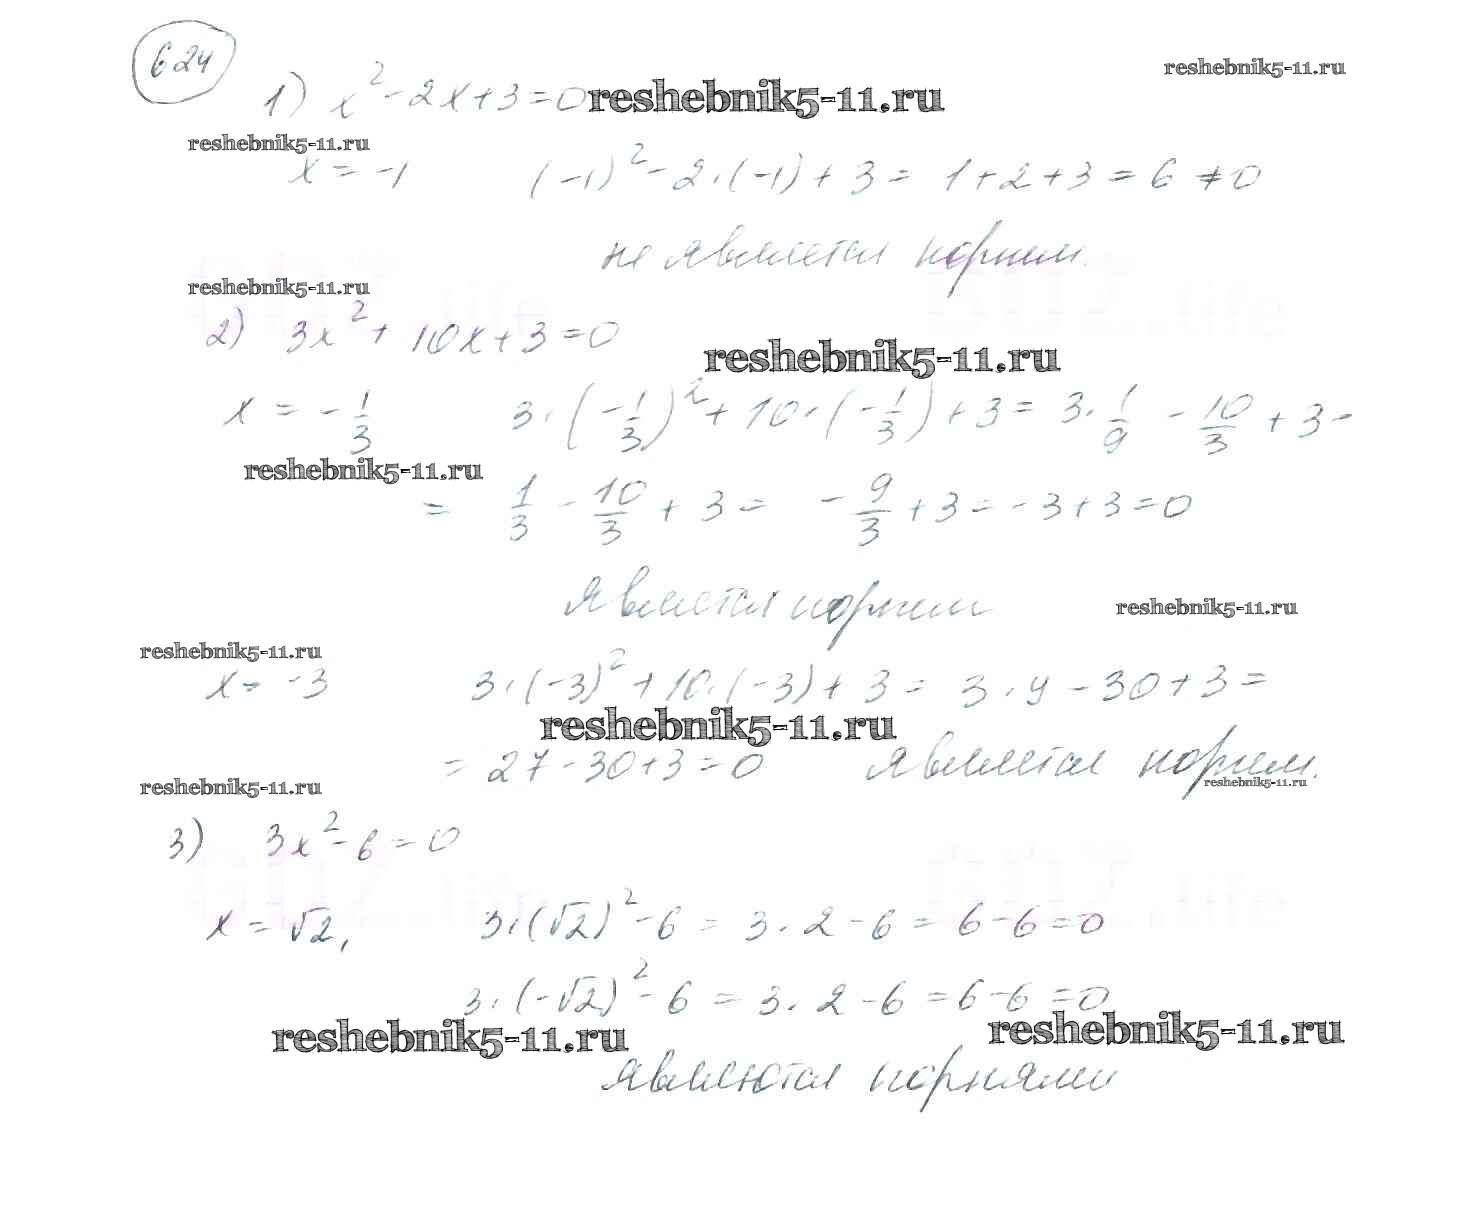 624
reshebnik5-11.ru
1) x² - 2x + 3 = 0 reshebnik5-11.ru
reshebnik5-11.ru
x = -1 (-1)² - 2·(-1) + 3 = 1 + 2 + 3 = 6 ≠ 0
не является корнем.
reshebnik5-11.ru
2) 3x² + 10x + 3 = 0
reshebnik5-11.ru
x = -1/3 3·(-1/3)² + 10·(-1/3) + 3 = 3·1/9 - 10/3 + 3 =
reshebnik5-11.ru
= 1/3 - 10/3 + 3 = -9/3 + 3 = -3 + 3 = 0
является корнем
reshebnik5-11.ru
reshebnik5-11.ru
x = -3 3·(-3)² + 10·(-3) + 3 = 3·9 - 30 + 3 =
reshebnik5-11.ru
= 27 - 30 + 3 = 0 является корнем.
reshebnik5-11.ru
reshebnik5-11.ru
3) 3x² - 6 = 0
x = √2, 3·(√2)² - 6 = 3·2 - 6 = 6 - 6 = 0
3·(-√2)² - 6 = 3·2 - 6 = 6 - 6 = 0
reshebnik5-11.ru
reshebnik5-11.ru
являются корнями